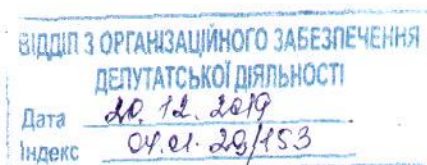 ВІДДІЛ З ОРГАНІЗАЦІЙНОГО ЗАБЕЗПЕЧЕННЯ
ДЕПУТАТСЬКОЇ ДІЯЛЬНОСТІ
Дата 20.12.2019
Індекс 04.01.29/153